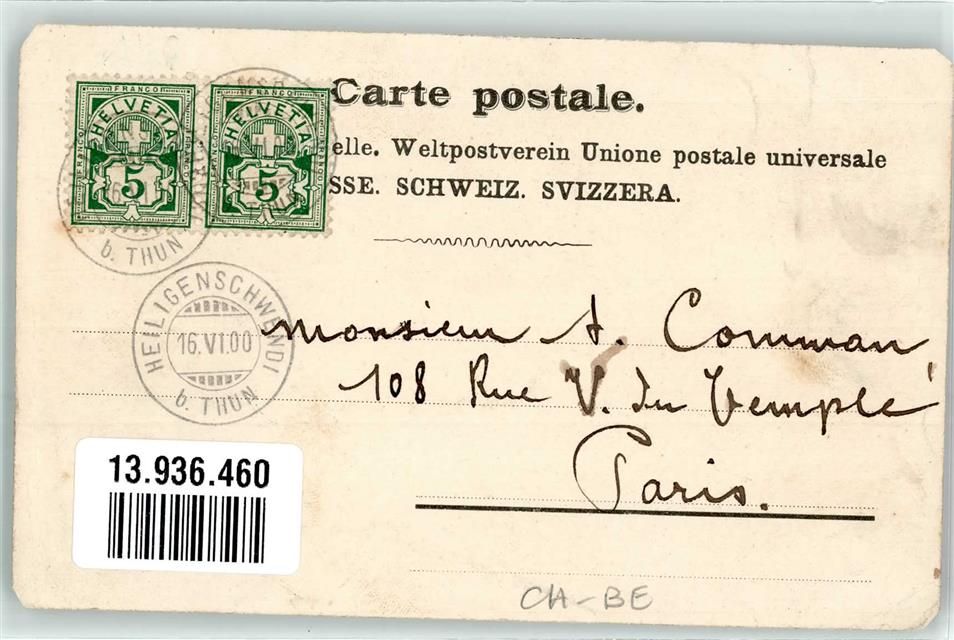 Carte postale.
elle. Weltpostverein Unione postale universale
SSE. SCHWEIZ. SVIZZERA.
FRANCO FRANCO
HELVETIA HELVETIA
5 5
b. THUN
HEILIGENSCHWENDI
16.VI.00
b. THUN
Monsieur A. Comman
108 Rue V. du Temple
Paris.
13.936.460
CH-BE